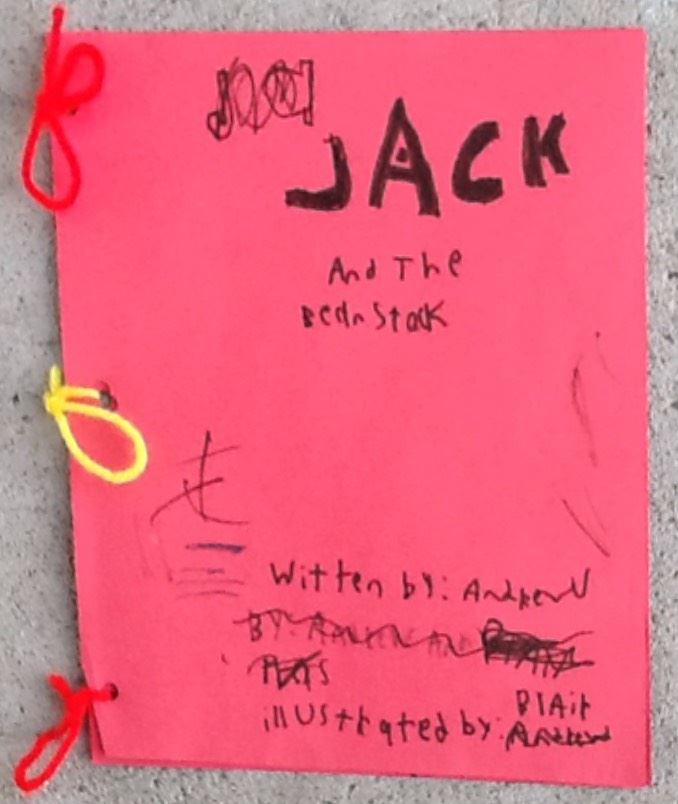 JACK
And The
Beanstack
Written by: Andrew
BY:
illustrated by: Blair